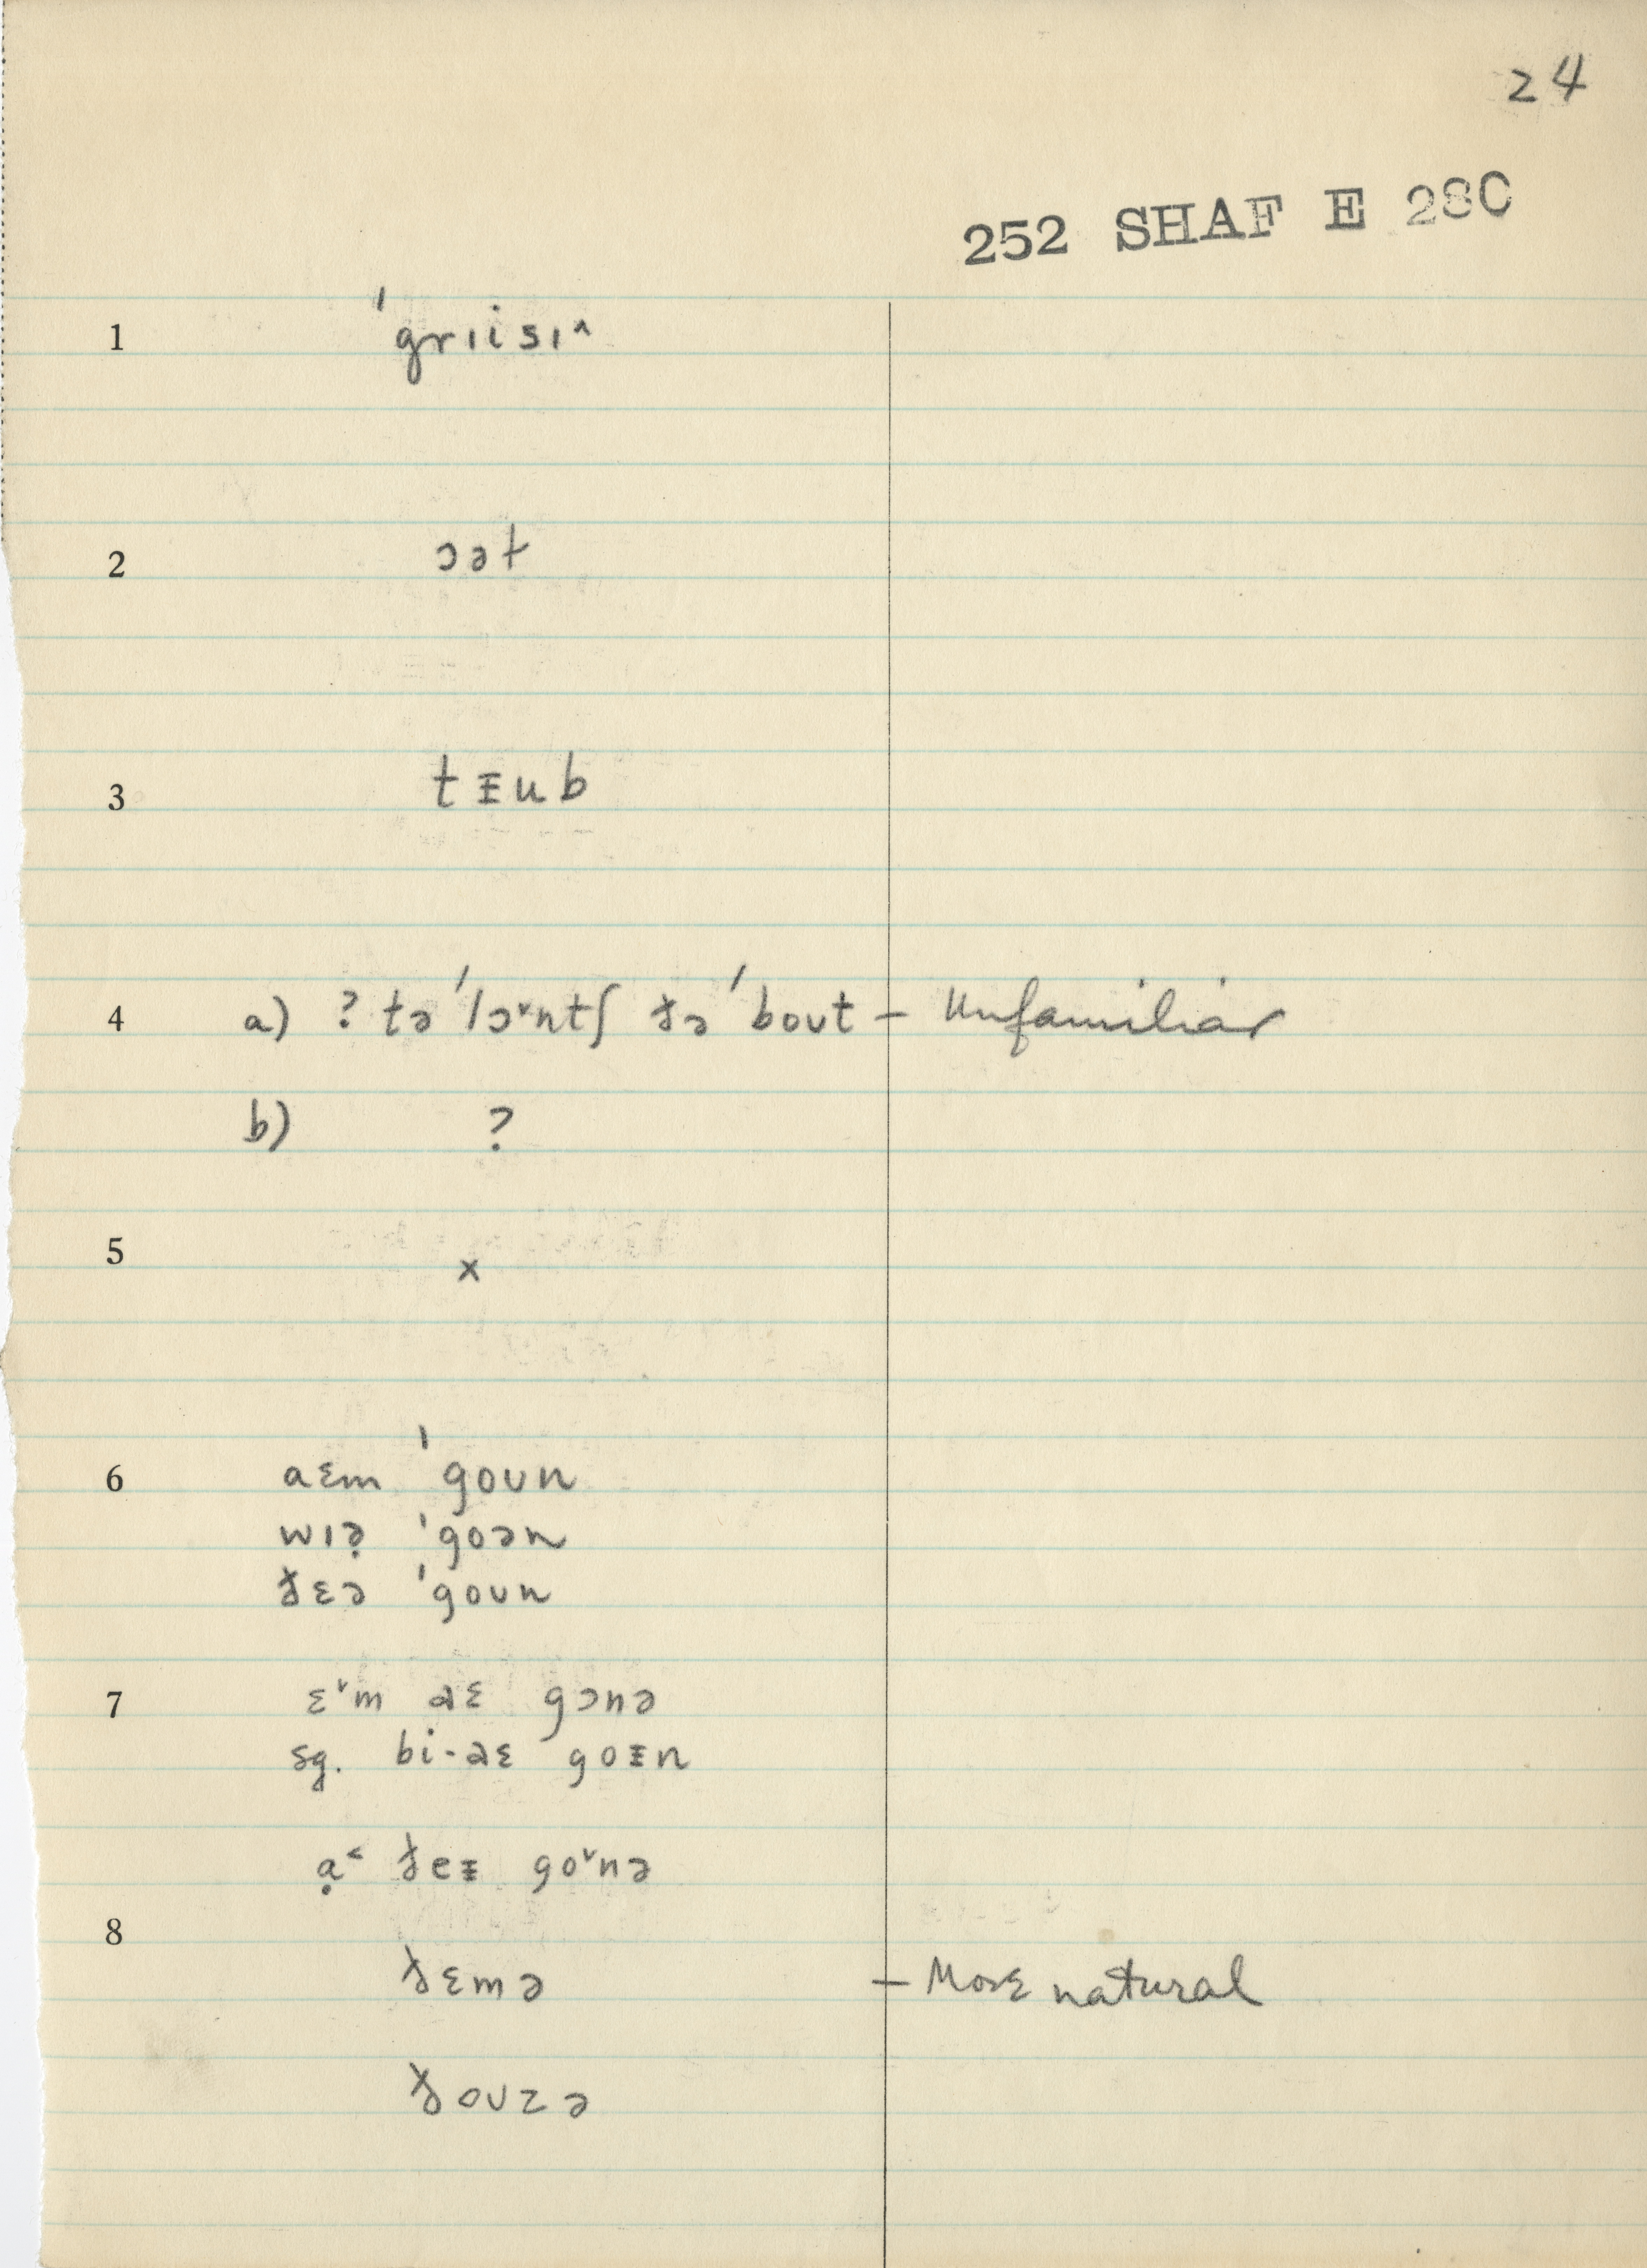 24
252 SHAF E 28C
1 ˈgrɪisɪ^
2 ɔət
3 tɪ̵ub
4 a) ? təˈlɔˇntʃ ðəˈboʊt – Unfamiliar
b) ?
5 x
6 aɛm ˈgoʊn
wɪə̣ ˈgoən
ðɛə ˈgoʊn
7 ɛˇm aɛ gɔnə
sg. bi-aɛ goɪ̵n
ạ˂ ðeɪ̵ goˇnə
8
ðɛmə – More natural
ðoʊzə